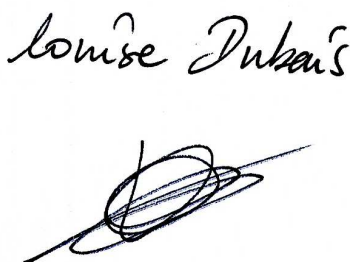 Louise Dubois